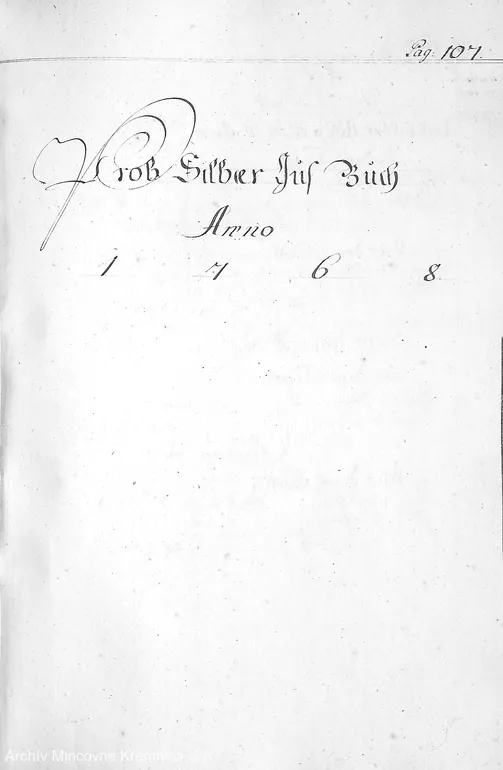 Pag: 107.
Prob Silber Guß Buch
Anno
1 7 6 8
Archív Mincovne Kremnica